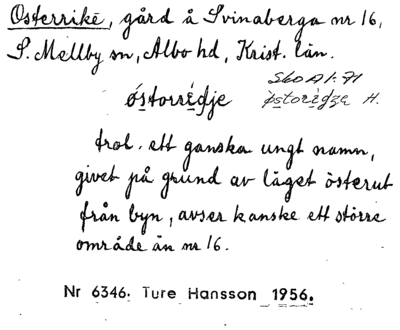 Österrike, gård å Svinaberga nr 16,
S. Mellby sn, Albo hd, Krist. län.
Sko A1:71
östorrèdje östorèdza H.
trol. ett ganska ungt namn,
givet på grund av läget österut
från byn, avser kanske ett större
område än nr 16.
Nr 6346. Ture Hansson 1956.